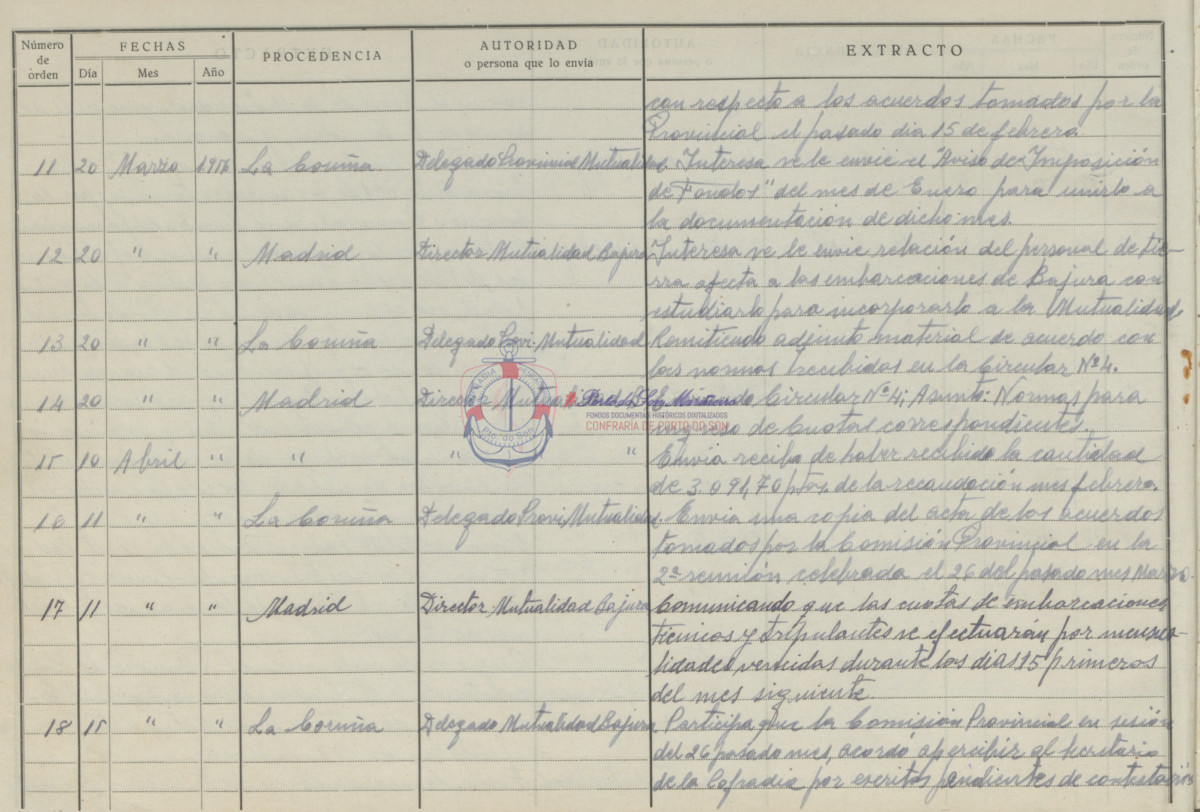 Número de orden FECHAS PROCEDENCIA AUTORIDAD o persona que lo envía EXTRACTO
Día Mes Año
con respecto a los acuerdos tomados por la
Provincial el pasado dia 15 de febrero.
11 20 Marzo 1956 La Coruña Delegado Provincial Mutualidad. Interesa se le envie el "Aviso de Imposición
de Fondos" del mes de Enero para unirlo a
la documentación de dicho mes.
12 20 " " Madrid Director Mutualidad Bajura Interesa se le envie relación del personal de tie-
rra afecta a las embarcaciones de Bajura con
estudiarlo para incorporarlo a la Mutualidad,
13 20 " " La Coruña Delegado Provi. Mutualidad Remitiendo adjunto material de acuerdo con
las normas recibidas en la Circular Nº 4.
14 20 " " Madrid Director Circular Nº 4; Asunto: Normas para
ingreso de Cuotas correspondientes.
15 10 Abril " " " " Envia recibo de haber recibido la cantidad
de 3.091,70 ptas. de la recaudación mes febrero.
16 11 " " La Coruña Delegado Provi, Mutualidad. Envia una copia del acta de los acuerdos
tomados por la Comisión Provincial en la
2ª reunión celebrada el 26 del pasado mes Marzo.
17 11 " " Madrid Director Mutualidad Bajura Comunicando que las cuotas de embarcaciones
tecnicos y tripulantes se efectuarán por mensua-
lidades vencidas durante los dias 15 primeros
del mes siguiente.
18 15 " " La Coruña Delegado Mutualidad Bajura Participa que la Comisión Provincial en sesión
del 26 pasado mes, acordó apercibir al Secretario
de la Cofradia por escritos pendientes de contestación
CONFRARÍA
Pto. do Son
FONDOS DOCUMENTAIS HISTÓRICOS DIXITALIZADOS
CONFRARÍA DE PORTO DO SON